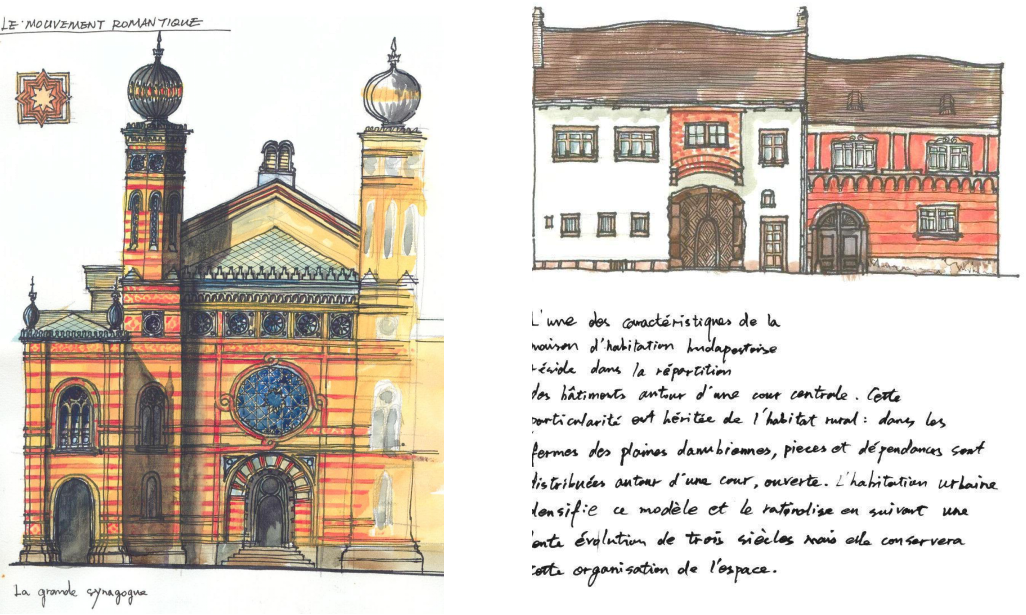 LE MOUVEMENT ROMANTIQUE
La grande synagogue
L'une des caractéristiques de la
maison d'habitation budapestoise
réside dans la répartition
des bâtiments autour d'une cour centrale. Cette
particularité est héritée de l'habitat rural : dans les
fermes des plaines danubiennes, pieces et dépendances sont
distribuées autour d'une cour, ouverte. L'habitation urbaine
densifie ce modèle et le rationalise en suivant une
lente évolution de trois siècles mais elle conservera
cette organisation de l'espace.